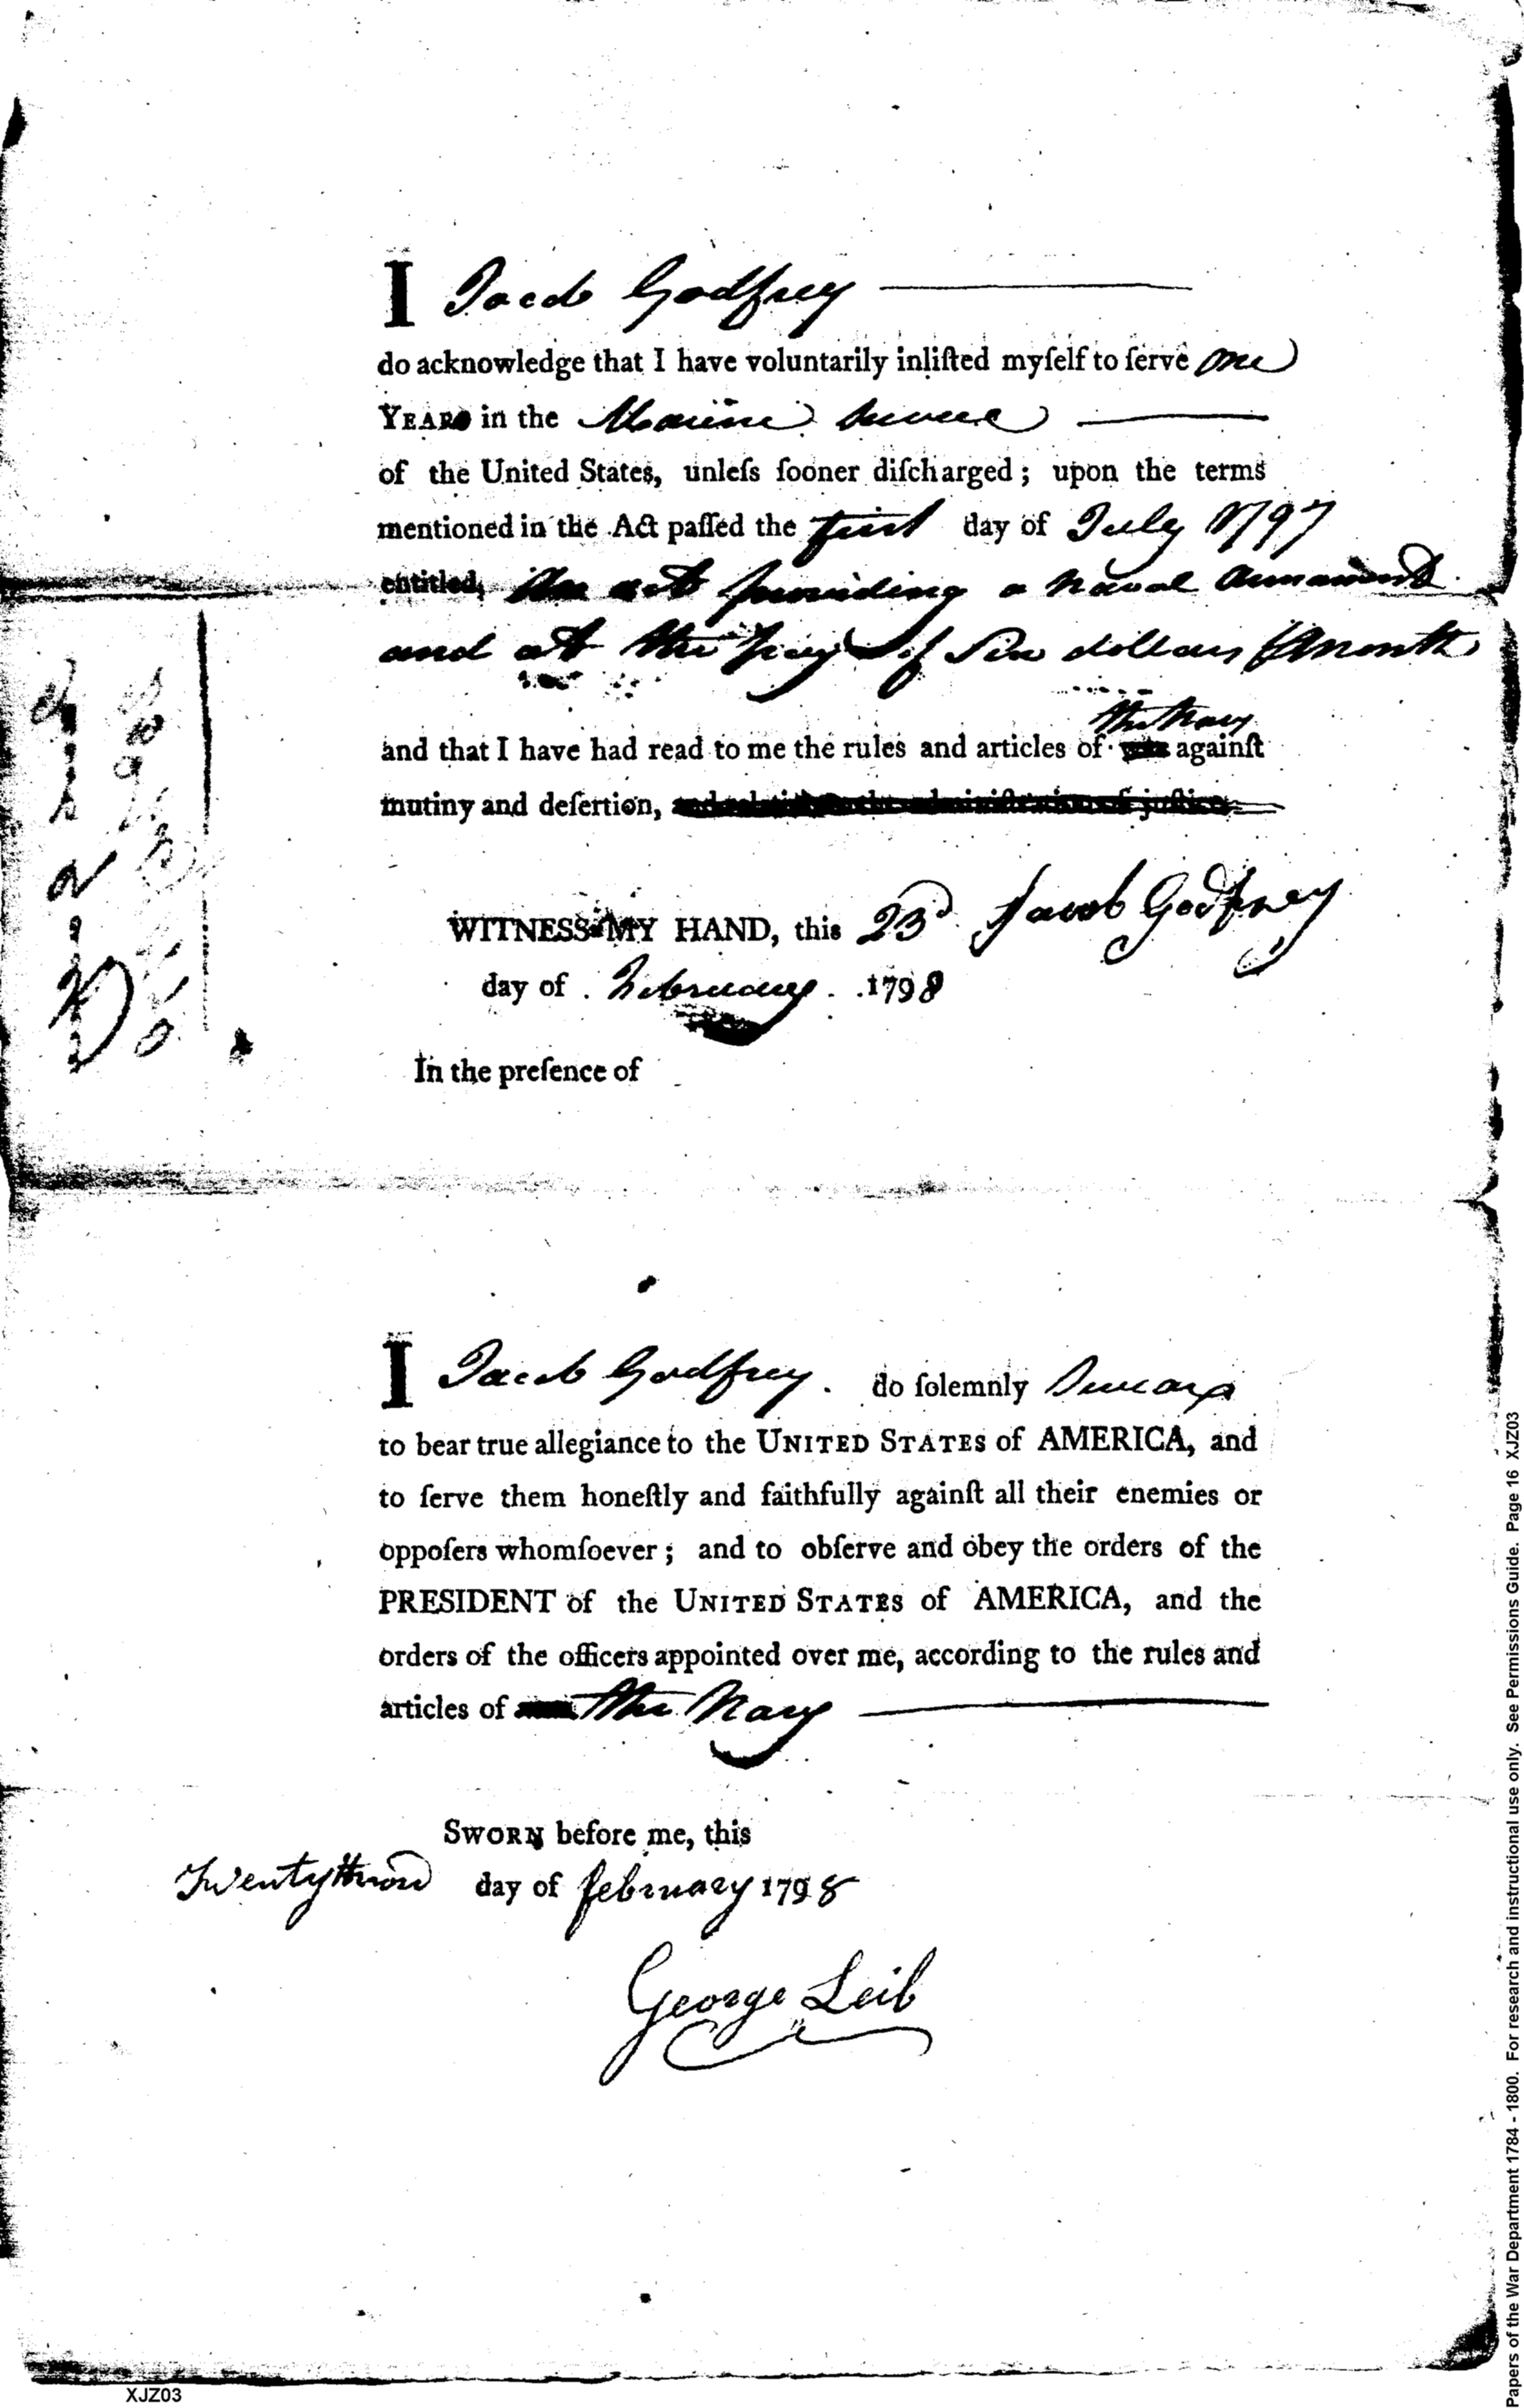 I Jacob Godfrey
do acknowledge that I have voluntarily inliſted myſelf to ſerve one
YEAR in the Marine Service
of the United States, unleſs ſooner diſcharged; upon the terms
mentioned in the Act paſſed the first day of July 1797
entitled, An act providing a Naval Armament
and at the pay of Six dollars month
the Navy
and that I have had read to me the rules and articles of war againſt
mutiny and deſertion, and relative to the adminiſtration of juſtice
WITNESS MY HAND, this 23d Jacob Godfrey
day of February 1798
In the preſence of
I Jacob Godfrey do ſolemnly Swear
to bear true allegiance to the UNITED STATES of AMERICA, and
to ſerve them honeſtly and faithfully againſt all their enemies or
oppoſers whomſoever; and to obſerve and obey the orders of the
PRESIDENT of the UNITED STATES of AMERICA, and the
orders of the officers appointed over me, according to the rules and
articles of the Navy
SWORN before me, this
Twenty third day of february 1798
George Leib
XJZ03
Papers of the War Department 1784 - 1800. For research and instructional use only. See Permissions Guide. Page 16 XJZ03